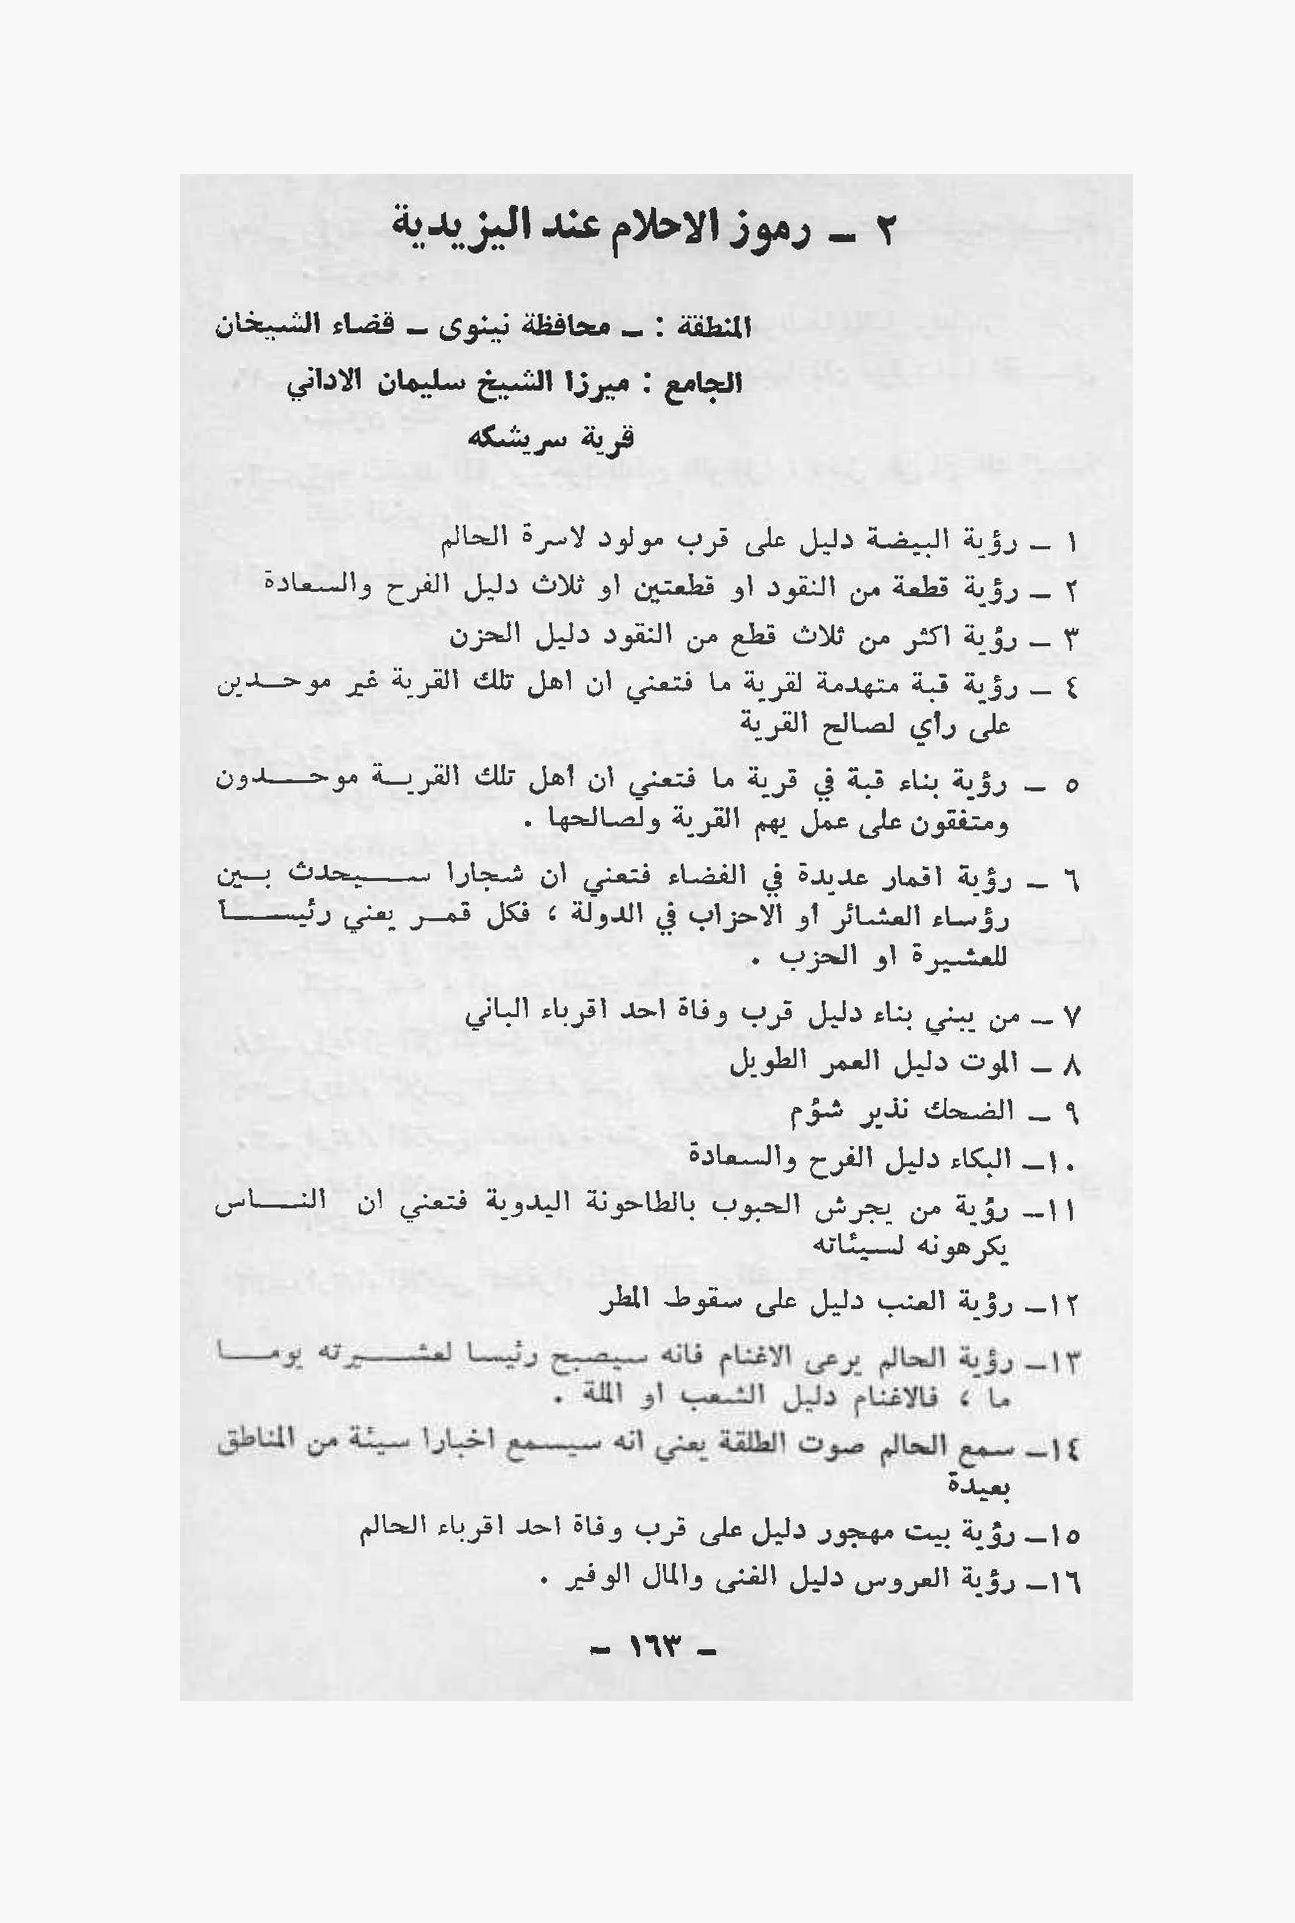 ٢ ــ رموز الاحلام عند اليزيدية
المنطقة : ــ محافظة نينوى ــ قضاء الشيخان
الجامع : ميرزا الشيخ سليمان الاداني
قرية سريشكه
١ ــ رؤية البيضة دليل على قرب مولود لاسرة الحالم
٢ ــ رؤية قطعة من النقود او قطعتين او ثلاث دليل الفرح والسعادة
٣ ــ رؤية اكثر من ثلاث قطع من النقود دليل الحزن
٤ ــ رؤية قبة متهدمة لقرية ما فتعني ان اهل تلك القرية غير موحـدين
على رأي لصالح القرية
٥ ــ رؤية بناء قبة في قرية ما فتعني ان أهل تلك القريــة موحــدون
ومتفقون على عمل يهم القرية ولصالحها .
٦ ــ رؤية اقمار عديدة في الفضاء فتعني ان شجارا ســيحدث بـين
رؤساء العشائر أو الاحزاب في الدولة ، فكل قمـر يعني رئيســاً
للعشيرة او الحزب .
٧ ــ من يبني بناء دليل قرب وفاة احد اقرباء الباني
٨ ــ الموت دليل العمر الطويل
٩ ــ الضحك نذير شؤم
١٠ــ البكاء دليل الفرح والسعادة
١١ــ رؤية من يجرش الحبوب بالطاحونة اليدوية فتعني ان النــاس
يكرهونه لسيئاته
١٢ــ رؤية العنب دليل على سقوط المطر
١٣ــ رؤية الحالم يرعى الاغنام فانه سيصبح رئيسا لعشــيرته يومــا
ما ، فالاغنام دليل الشعب او الملة .
١٤ــ سمع الحالم صوت الطلقة يعني انه سيسمع اخبارا سيئة من المناطق
بعيدة
١٥ــ رؤية بيت مهجور دليل على قرب وفاة احد اقرباء الحالم
١٦ــ رؤية العروس دليل الغنى والمال الوفير .
ــ ١٦٣ ــ